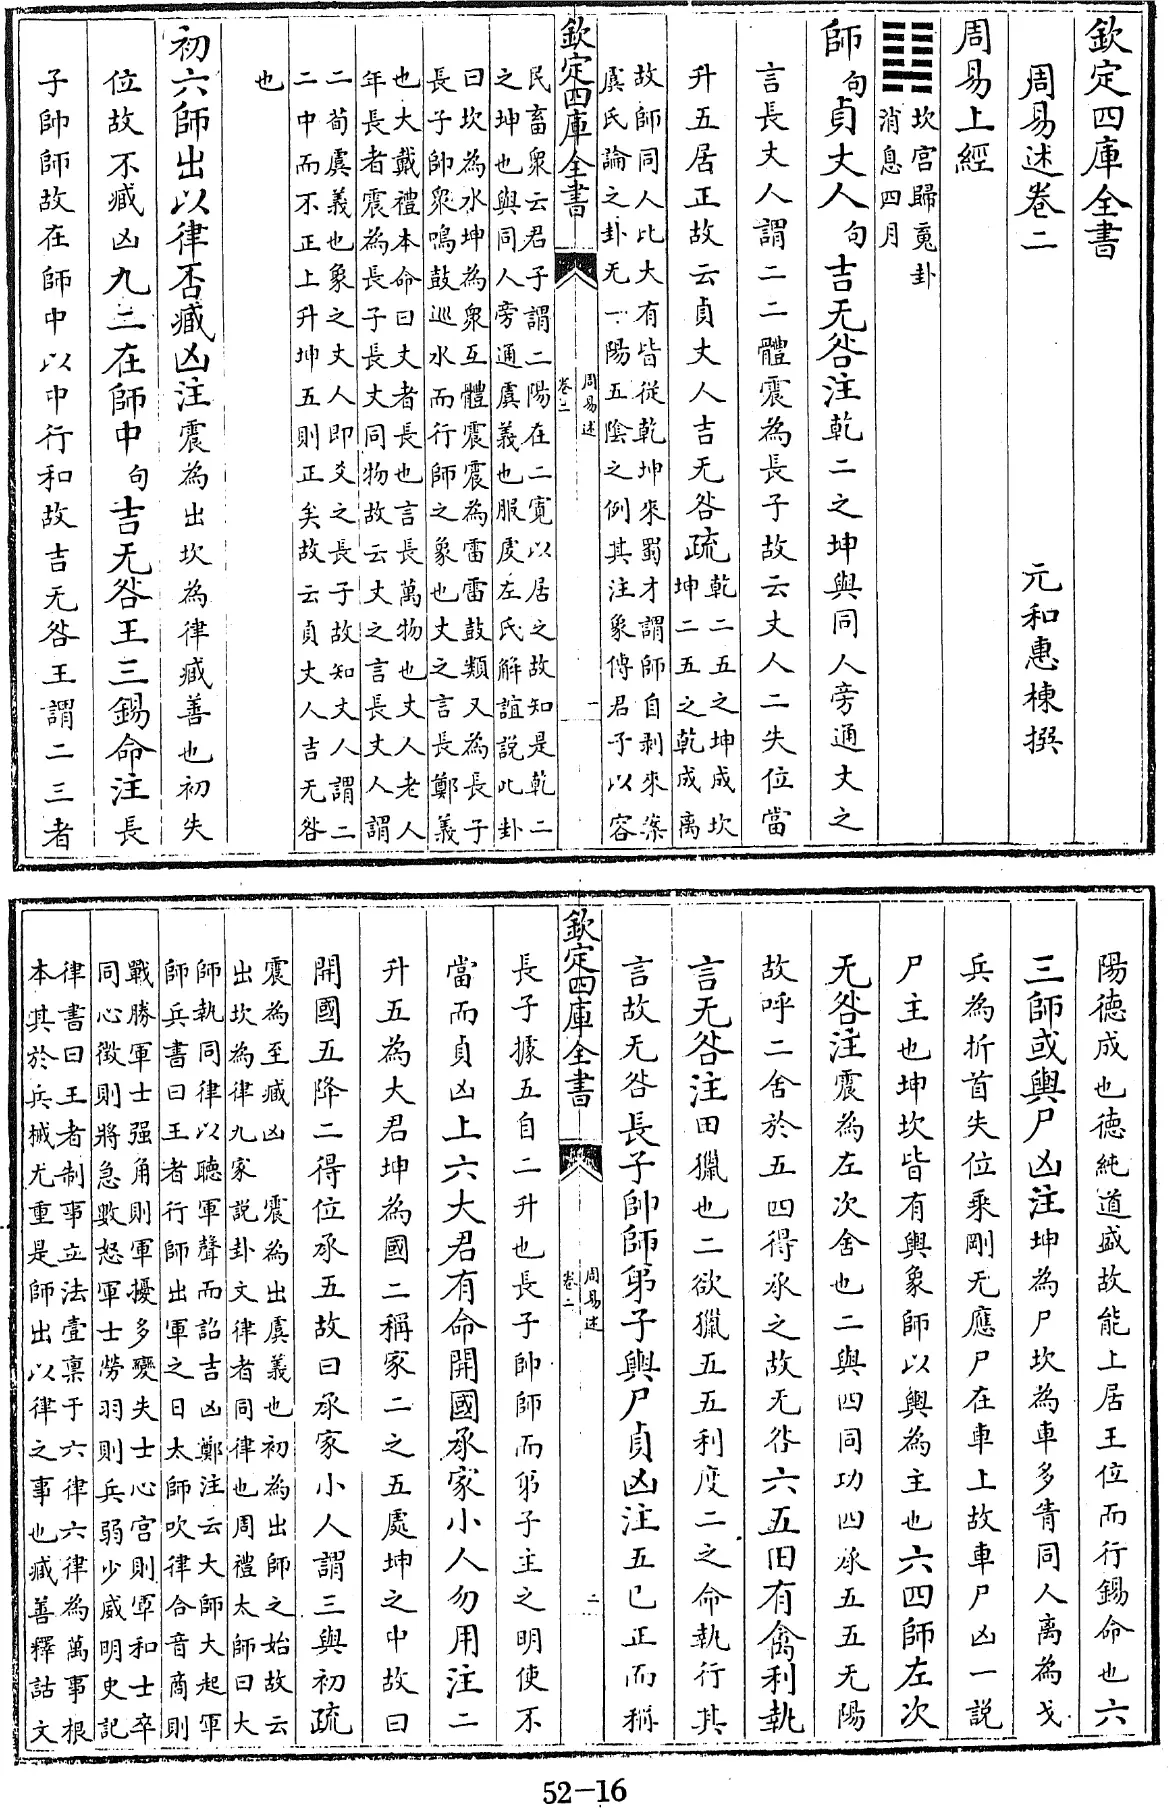 欽定四庫全書
周易述卷二
元和惠棟撰
周易上經
坎宫歸䰟卦
消息四月
師句貞丈人句吉无咎注乾二之坤與同人旁通丈之
言長丈人謂二二體震為長子故云丈人二失位當
升五居正故云貞丈人吉无咎疏乾二五之坤成坎
坤二五之乾成離
故師同人比大有皆從乾坤來蜀才謂師自剥來案
虞氏論之卦无一陽五陰之例其注彖傳君子以容
欽定四庫全書
周易述
卷二
一
民畜衆云君子謂二陽在二寛以居之故知是乾二
之坤也與同人旁通虞義也服虔左氏解誼說此卦
曰坎為水坤為衆互體震震為雷雷鼓類又為長子
長子帥衆鳴鼓巡水而行師之象也丈之言長鄭義
也大戴禮本命曰丈者長也言長萬物也丈人老人
年長者震為長子長丈同物故云丈之言長丈人謂
二荀虞義也彖之丈人即爻之長子故知丈人謂二
二中而不正上升坤五則正矣故云貞丈人吉无咎
也
初六師出以律否臧凶注震為出坎為律臧善也初失
位故不臧凶九二在師中句吉无咎王三錫命注長
子帥師故在師中以中行和故吉无咎王謂二三者
陽德成也德純道盛故能上居王位而行錫命也六
三師或輿尸凶注坤為尸坎為車多眚同人離為戈
兵為折首失位乘剛无應尸在車上故車尸凶一説
尸主也坤坎皆有輿象師以輿為主也六四師左次
无咎注震為左次舍也二與四同功四承五五无陽
故呼二舍於五四得承之故无咎六五田有禽利執
言无咎注田獵也二欲獵五五利度二之命執行其
言故无咎長子帥師弟子輿尸貞凶注五已正而稱
欽定四庫全書
周易述
卷二
二
長子據五自二升也長子帥師而弟子主之明使不
當而貞凶上六大君有命開國承家小人勿用注二
升五為大君坤為國二稱家二之五處坤之中故曰
開國五降二得位承五故曰承家小人謂三與初疏
震為至臧凶　震為出虞義也初為出師之始故云
出坎為律九家説卦文律者同律也周禮太師曰大
師執同律以聽軍聲而詔吉凶鄭注云大師大起軍
師兵書曰王者行師出軍之日太師吹律合音商則
戰勝軍士强角則軍擾多變失士心宫則軍和士卒
同心徵則將急數怒軍士勞羽則兵弱少威明史記
律書曰王者制事立法壹稟于六律六律為萬事根
本其於兵械尤重是師出以律之事也臧善釋詁文
52-16